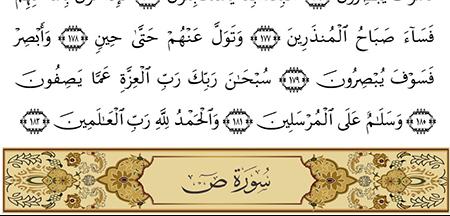 فَسَآءَ صَبَاحُ ٱلْمُنذَرِينَ ١٧٧ وَتَوَلَّ عَنْهُمْ حَتَّىٰ حِينٍ ١٧٨ وَأَبْصِرْ
فَسَوْفَ يُبْصِرُونَ ١٧٩ سُبْحَٰنَ رَبِّكَ رَبِّ ٱلْعِزَّةِ عَمَّا يَصِفُونَ
١٨٠ وَسَلَٰمٌ عَلَى ٱلْمُرْسَلِينَ ١٨١ وَٱلْحَمْدُ لِلَّهِ رَبِّ ٱلْعَٰلَمِينَ ١٨٢
سُورَةُ صٓ